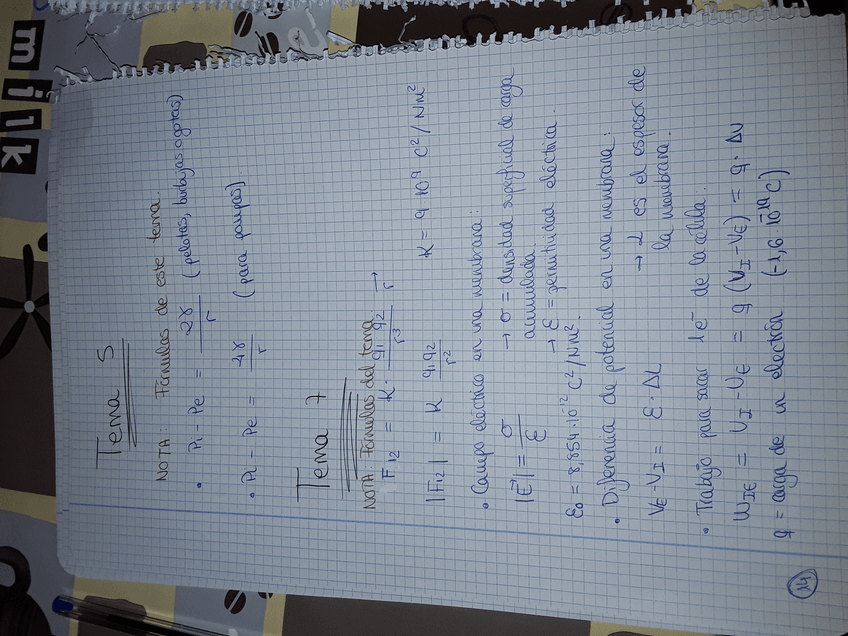 milk
Tema 5
NOTA: Fórmulas de este tema.
• Pi - Pe = 2γ / r (pelotas, burbujas o gotas)
• Pi - Pe = 4γ / r (para pompas)
Tema 7
NOTA Fórmulas del tema
F⃗12 = K · q1 · q2 / r³ r⃗
|F12| = K q1 q2 / r² K = 9·10⁹ C² / Nm²
• Campo eléctrico en una membrana:
|E⃗| = σ / ε → σ = densidad superficial de carga
acumulada.
→ ε = permitividad eléctrica.
ε0 = 8,854·10⁻¹² C² / Nm².
• Diferencia de potencial en una membrana:
VE - VI = E · ΔL → L es el espesor de
la membrana.
• Trabajo para sacar 1e⁻ de la célula:
WIE = UI - UE = q (VI - VE) = q · ΔV
q = carga de un electrón (-1,6·10⁻¹⁹ C)
14